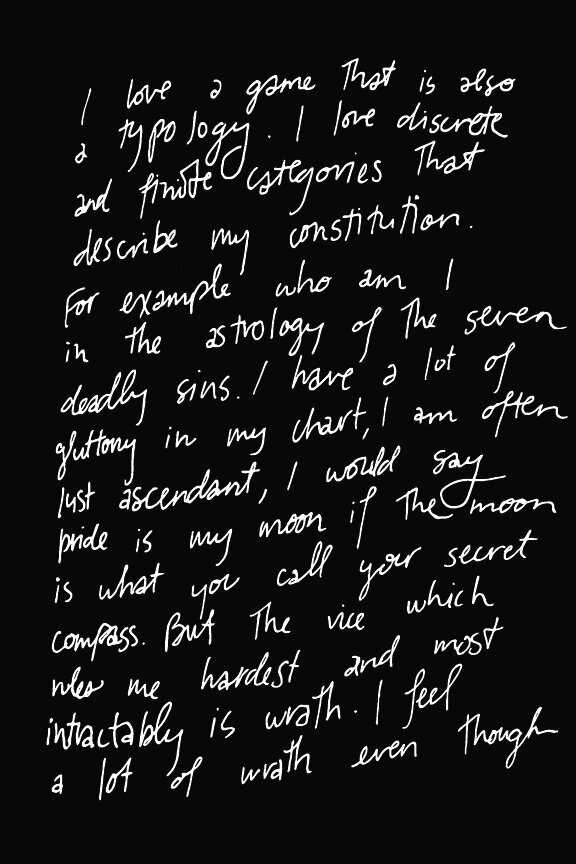 I love a game that is also
a typology. I love discrete
and finite categories that
describe my constitution.
For example who am I
in the astrology of the seven
deadly sins. I have a lot of
gluttony in my chart, I am often
lust ascendant, I would say
pride is my moon if the moon
is what you call your secret
compass. But the vice which
rules me hardest and most
intractably is wrath. I feel
a lot of wrath even though